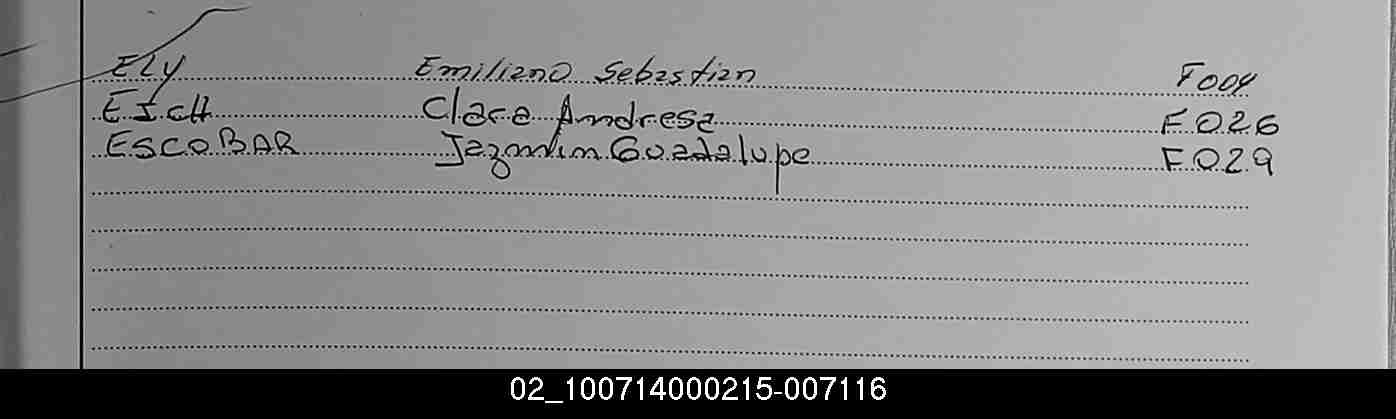 Ely Emiliano Sebastian F004
EICH Clara Andrea F026
ESCOBAR Jazmin Guadalupe F029
02_100714000215-007116